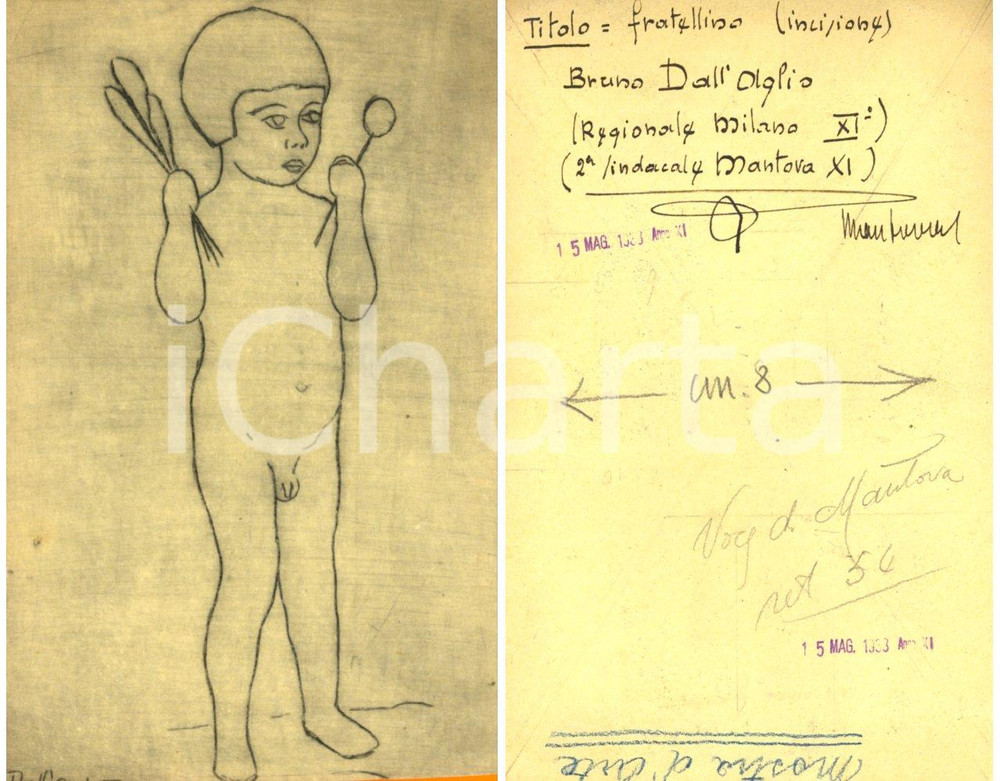 Titolo = fratellino (incisione)
Bruno Dall'Aglio
(Regionale Milano XI°)
(2ª sindacale Mantova XI)
15 MAG. 1933 Anno XI
iCharta
cm. 8
Voce di Mantova
ret 54
15 MAG. 1933 Anno XI
Mostra d'Arte